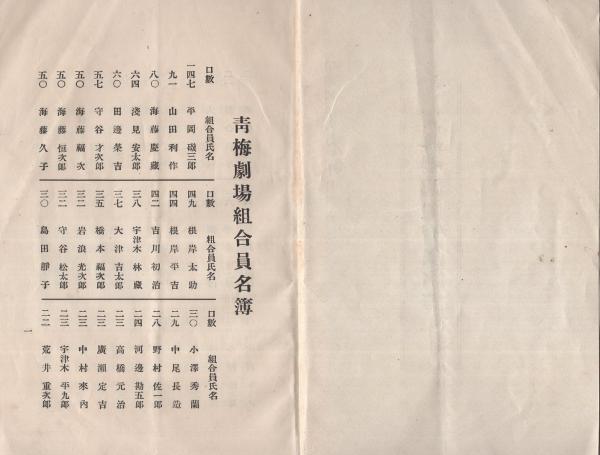 靑梅劇場組合員名簿
口數 組合員氏名
一四七 平岡磯三郎
九一 山田利作
八〇 海藤慶藏
六四 淺見安太郎
六〇 田邊榮吉
五七 守谷才次郎
五〇 海藤福次
五〇 海藤恒次郎
五〇 海藤久子
口數 組合員氏名
四九 根岸太助
四四 根岸平吉
四二 吉川初治
三八 宇津木林藏
三七 大津吉太郎
三五 橋本福次郎
三二 岩浪光次郎
三二 守谷松太郎
三〇 島田靜子
口數 組合員氏名
三〇 小澤秀蘭
二九 中尾長造
二八 野村佐一郎
二四 河邊勘五郎
二三 高橋元治
二三 廣瀬定吉
二三 中村來內
二三 宇津木平九郎
二二 荒井重次郎
一